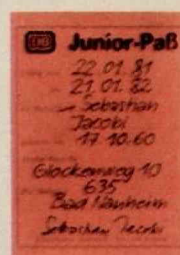 DB Junior-Paß
22 01. 81
21. 01. 82
Sebastian
Jacobi
17. 10. 60
Glockenweg 10
635
Bad Nauheim
Sebastian Jacobi